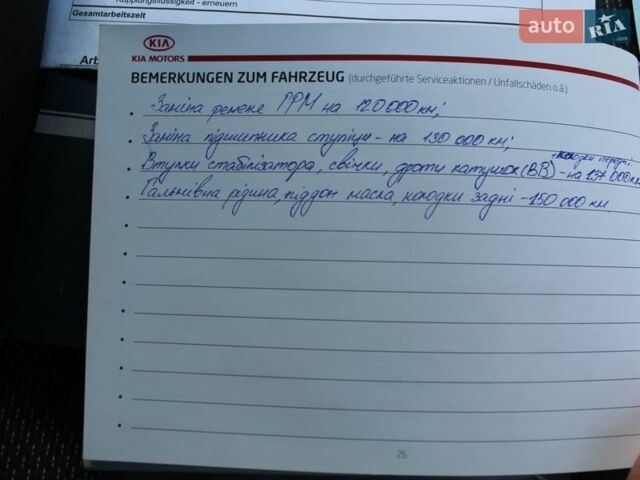 Kupplungsflüssigkeit - erneuern
Gesamtarbeitszeit
auto RIA .com
KIA
KIA MOTORS
BEMERKUNGEN ZUM FAHRZEUG (durchgeführte Serviceaktionen / Unfallschäden o.ä.)
Заміна ременя ГРМ на 120 000 км;
Заміна підшипника ступіци - на 130 000 км;
+ колодки передні,
Втулки стабілізатора, свічки, дроти катушок (ВВ) - на 137 000 км
Гальмівна рідина, піддон масла, колодки задні - 150 000 км.
26